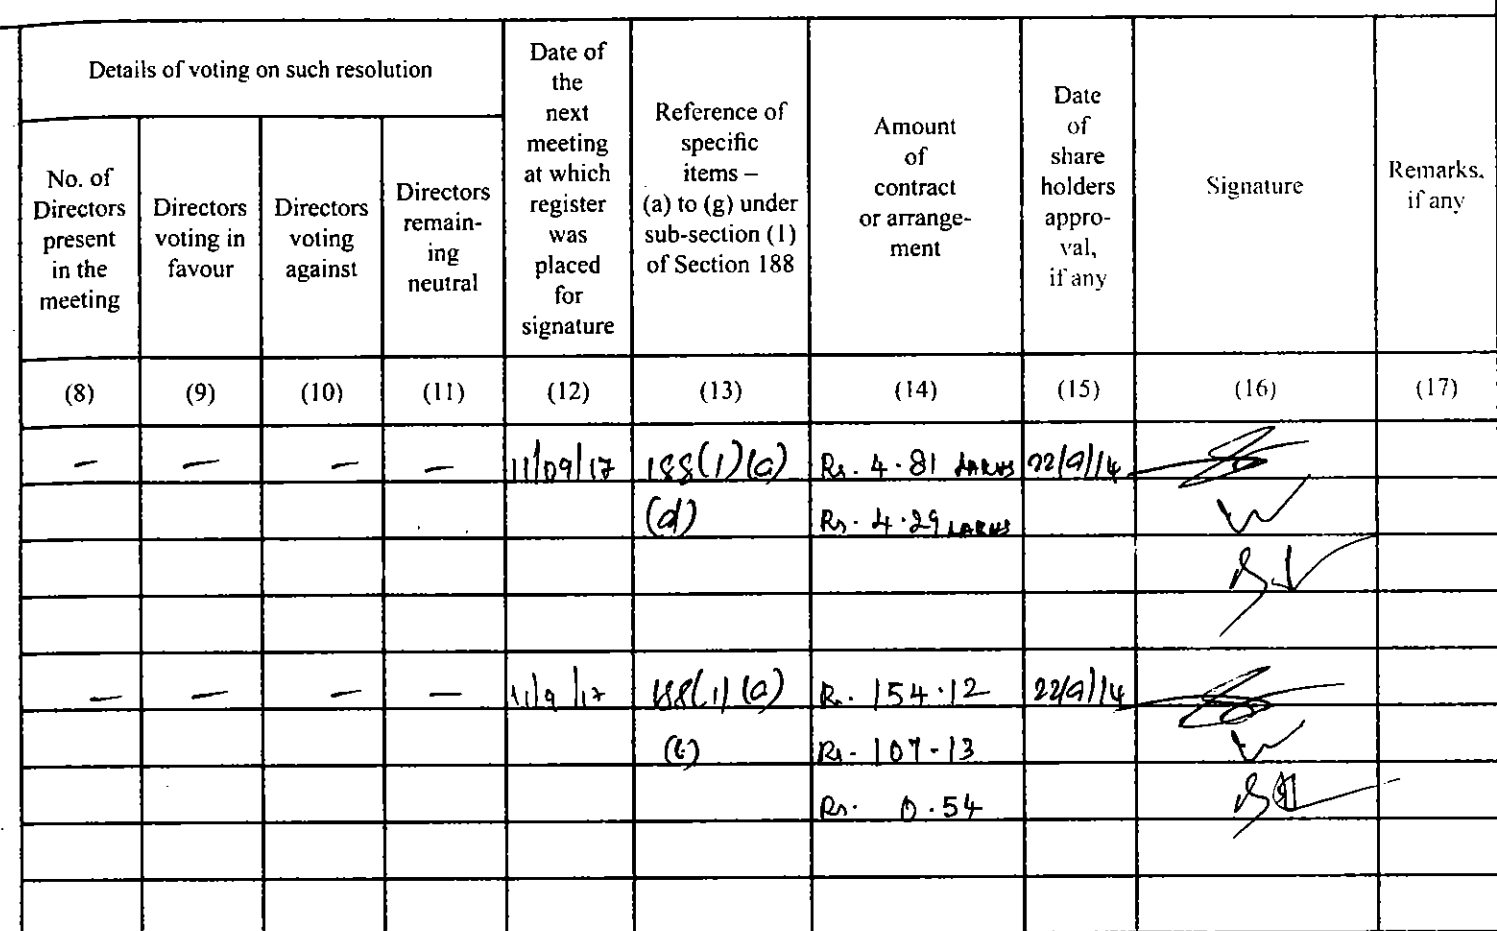 Details of voting on such resolution
No. of
Directors
present
in the
meeting
Directors
voting in
favour
Directors
voting
against
Directors
remain-
ing
neutral
Date of
the
next
meeting
at which
register
was
placed
for
signature
Reference of
specific
items –
(a) to (g) under
sub-section (1)
of Section 188
Amount
of
contract
or arrange-
ment
Date
of
share
holders
appro-
val,
if any
Signature
Remarks,
if any
(8) (9) (10) (11) (12) (13) (14) (15) (16) (17)
– – – – 11/09/17 188(1)(a) Rs. 4.81 LAKHS 22/9/14
(d) Rs. 4.29 LAKHS
– – – – 11/9/17 188(1)(a) Rs. 154.12 22/9/14
Rs. 107.13
Rs. 0.54